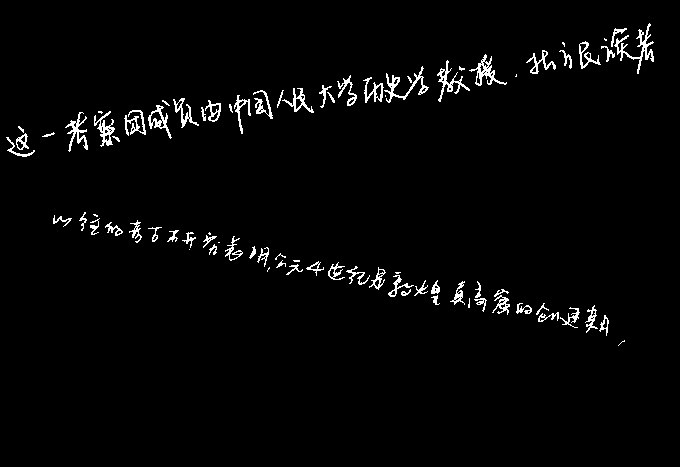 这一考察团成员由中国人民大学历史学教授、北方民族考
以往的考古研究表明,公元4世纪是敦煌莫高窟的创建期,